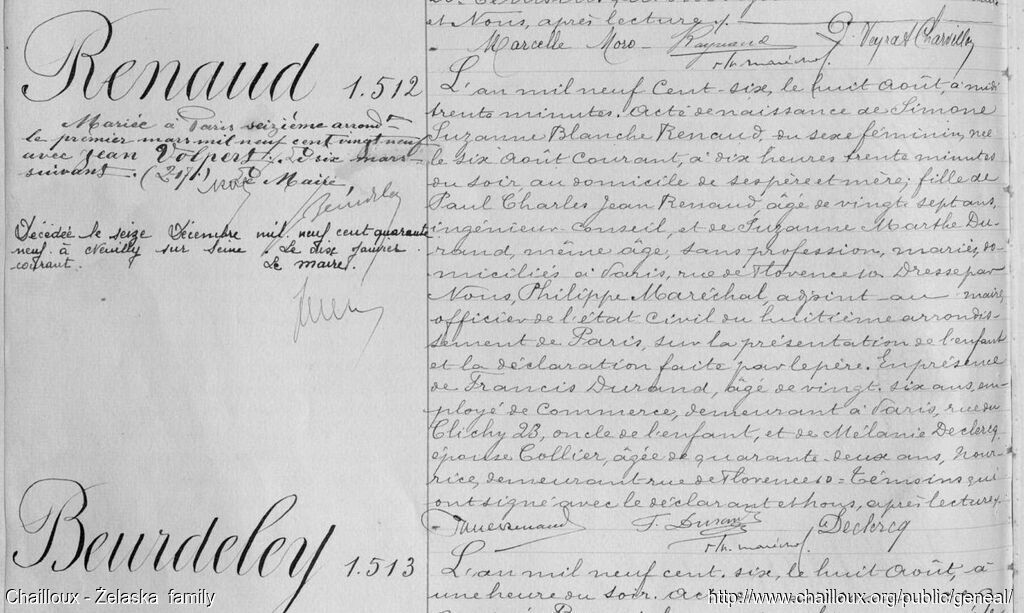 et Nous, après lecture ./.
Marcelle Moro - Raynaud
Ph. Maréchal
Renaud 1.512
Mariée à Paris seizième arrondt
le premier mars mil neuf cent vingt neuf
avec Jean Volpert ./. Dix mars
suivant. (217)
Le Maire,
Décédée le seize Décembre mil neuf cent quarante
neuf à Neuilly sur Seine Le dix Janvier
courant. Le maire.
L'an mil neuf Cent-six, le huit Août, à midi
trente minutes. Acte de naissance de Simone
Suzanne Blanche Renaud, du sexe féminin, née
le six Août Courant, à dix heures trente minutes
du soir, au domicile de ses père et mère; fille de
Paul Charles Jean Renaud, âgé de vingt-sept ans,
ingénieur-Conseil, et de Suzanne Marthe Du-
rand, même âge, sans profession, mariés, do-
miciliés à Paris, rue de Florence 10. Dressé par
Nous, Philippe Maréchal, adjoint au maire,
officier de l'état Civil du huitième arrondis-
sement de Paris, sur la présentation de l'enfant
et la déclaration faite par le père. En présence
de Francis Durand, âgé de vingt-six ans, em-
ployé de Commerce, demeurant à Paris, rue de
Clichy 23, oncle de l'enfant, et de Mélanie Declercq,
épouse Collier, âgée de quarante-deux ans, nour-
rice, demeurant rue de Florence 10 = Témoins qui
ont signé avec le déclarant et Nous, après lecture ./.
F. Durand Declercq
Ph. Maréchal
Beurdeley 1.513
L'an mil neuf cent-six, le huit Août, à
une heure du soir. Acte
Chailloux - Żelaska family
http://www.chailloux.org/public/geneal/